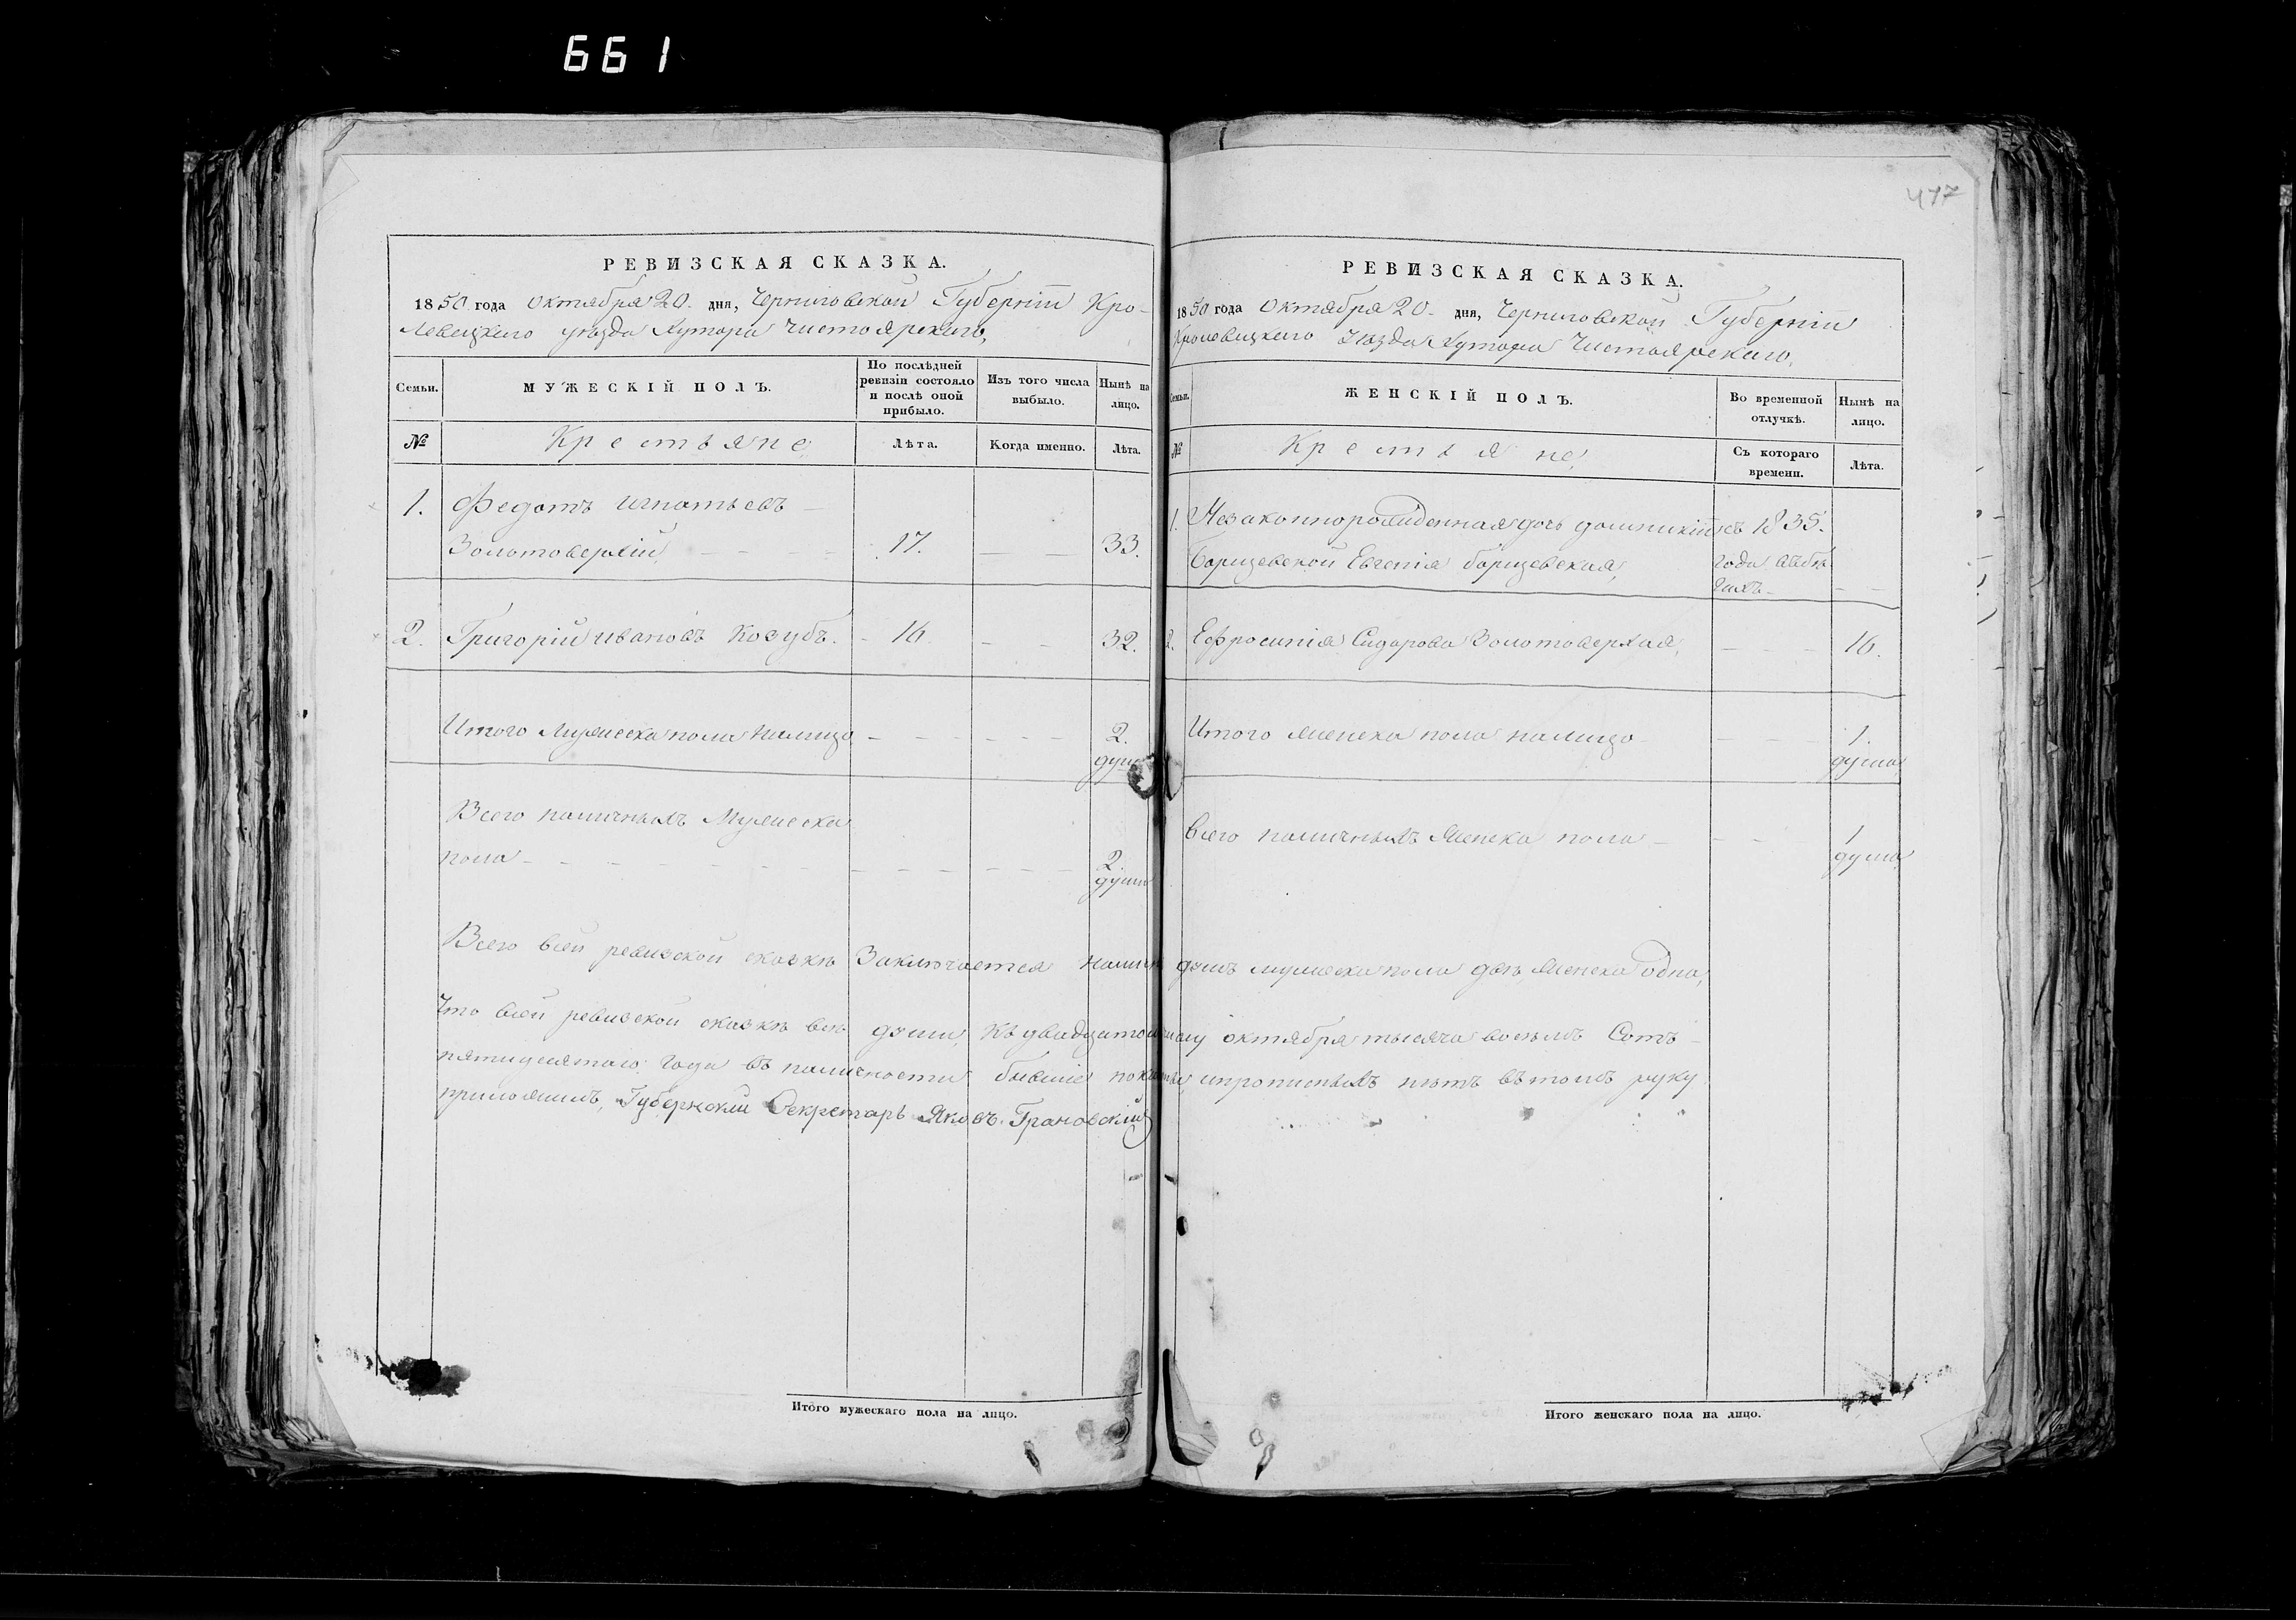 661
477
РЕВИЗСКАЯ СКАЗКА.
1850 года Октября 20. дня, Черниговской Губерніи Кро-
левецкаго уезда Хутора Чистоярскаго,
Семьи.
МУЖЕСКІЙ ПОЛЪ.
По послѣдней ревизіи состояло и послѣ оной прибыло.
Изъ того числа выбыло.
Нынѣ на лицо.
№
Крестьяне,
Лѣта.
Когда именно.
Лѣта.
1. Федотъ Игнатьевъ
Золотоверхій 17. 33.
2. Григорій Ивановъ Козубъ. 16. 32.
Итого Мужеска пола налицо 2.
души
Всего наличныхъ Мужеска
пола 2.
души
РЕВИЗСКАЯ СКАЗКА.
1850 года Октября 20. дня, Черниговской Губерніи
Кролевецкаго уезда Хутора Чистоярскаго,
Семьи.
ЖЕНСКІЙ ПОЛЪ.
Во временной отлучкѣ.
Нынѣ на лицо.
№
Крестьяне,
Съ котораго времени.
Лѣта.
1. Незаконнорожденная дочь съ 1835.
Борщевской Евгенія Борщевская, года вѣбѣ-
гахъ
2. Ефросинія Сидорова Золотоверхая, 16.
Итого женска пола налицо 1.
душа
Всего наличныхъ Женска пола 1
душа
Всего всей ревизской сказкѣ Заключается налицо душъ мужеска пола двѣ, женска одна,
Что всей ревизской сказкѣ всѣ души, къ двадцатому октября тысяча восемь Сотъ
пятидесятаго года въ наличности бывшіе показаны, ипрописныхъ нѣтъ вътомъ руку
приложилъ, Губернскій Секретарь Яковъ Грановскій
Итого мужескаго пола на лицо.
Итого женскаго пола на лицо.